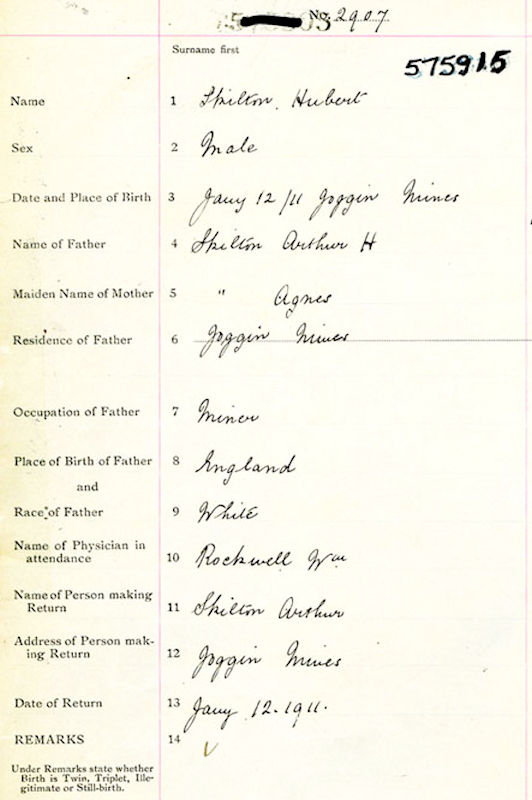 No. 2907
Surname first
575915
Name 1 Skilton, Hubert
Sex 2 Male
Date and Place of Birth 3 Jany 12/11 Joggin Mines
Name of Father 4 Skilton Arthur H
Maiden Name of Mother 5 " Agnes
Residence of Father 6 Joggin Mines
Occupation of Father 7 Miner
Place of Birth of Father 8 England
and
Race of Father 9 White
Name of Physician in
attendance 10 Rockwell Wm
Name of Person making
Return 11 Skilton Arthur
Address of Person mak-
ing Return 12 Joggin Mines
Date of Return 13 Jany 12.1911.
REMARKS 14
Under Remarks state whether
Birth is Twin, Triplet, Ille-
gitimate or Still-birth.